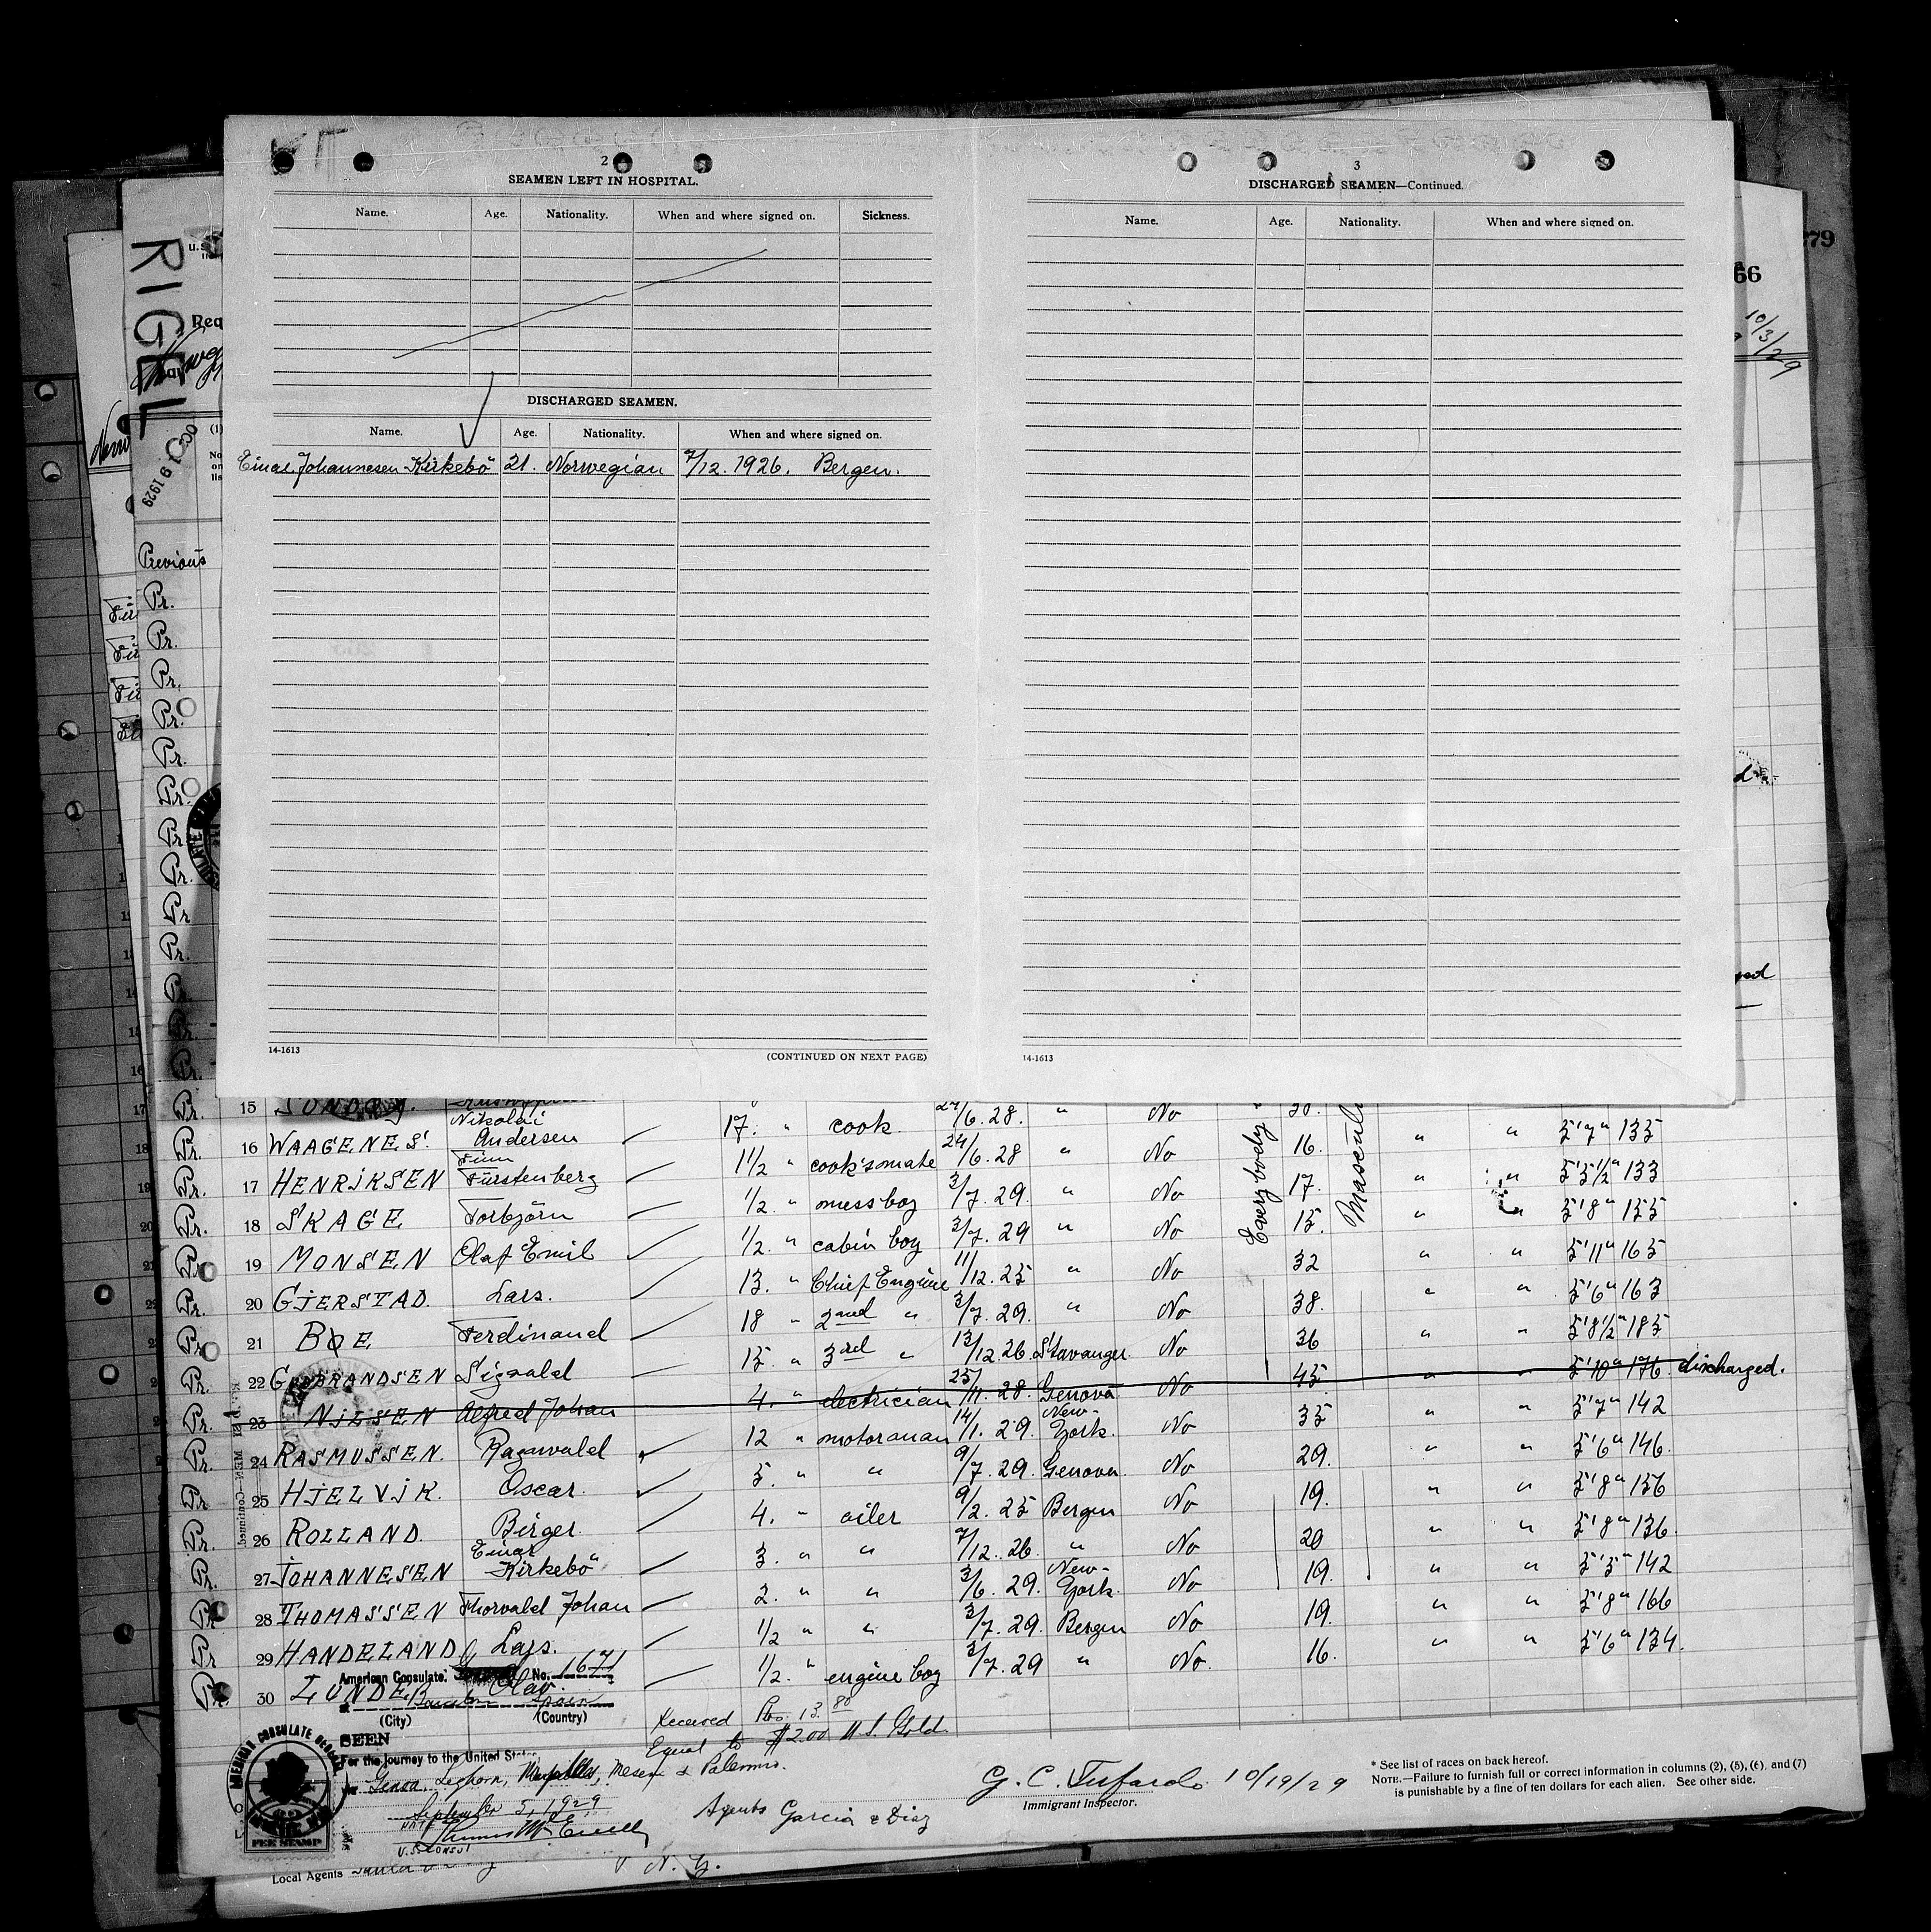 2
SEAMEN LEFT IN HOSPITAL.
Name. Age. Nationality. When and where signed on. Sickness.
DISCHARGED SEAMEN.
Name. Age. Nationality. When and where signed on.
Einar Johannesen Kirkebö 21. Norwegian 7/12. 1926. Bergen.
14-1613
(CONTINUED ON NEXT PAGE)
3
DISCHARGED SEAMEN—Continued.
Name. Age. Nationality. When and where signed on.
14-1613
RIGEL
Req
OCT 19 1929
Previous
Pr.
Pr.
Pr.
Pr.
Pr.
Pr.
Pr.
Pr.
Pr
Pr.
Pr.
779
66
10/3/29
Pr. 15 24/6. 28. " No 30.
Pr. 16 WAAGENES. Nikolai Andersen 17. " cook 24/6. 28 " No 16. " " 5'7" 135
Pr. 17 HENRIKSEN Finn Fürstenberg 1 1/2 " cook's mate 3/7. 29. " No 17. " " 5'5 1/2" 133
Pr. 18 SKAGE Torbjörn 1/2. " mess boy 3/7. 29 " No 15. " " 5'8" 155
Everybody
Masculi
Pr 19 MONSEN Olaf Emil 1/2. " cabin boy 11/12. 25 " No 32 " " 5'11" 165
Pr. 20 GJERSTAD. Lars. 13. " Chief Engine 3/7. 29. " No 38. " " 5'6" 163
Pr 21 BOE Ferdinand 18 " 2nd " 13/12. 26. Stavanger No 36 " " 5'8 1/2" 185
Pr. 22 GUDBRANDSEN Sigvald 15. " 3rd " 25/11. 28. Genova No 45 " " 5'10" 176 discharged.
Pr. 23 NILSEN Alfred Johan 4. " electrician 14/1. 29. New-York. No 35 " " 5'7" 142
Pr. 24 RASMUSSEN. Ragnvald 12 " motorman 9/7. 29. Genova. No 29. " " 5'6" 146.
Pr 25 HJELVIK. Oscar. 5. " " 9/2. 25 Bergen No 19. " " 5'8" 156
Pr. 26 ROLLAND. Birger. 4. " oiler 7/12. 26. " No 20 " " 5'8" 136.
Pr. 27 JOHANNESEN Einar Kirkebö 3. " " 3/6. 29. New-York. No 19. " " 5'5" 142
Pr 28 THOMASSEN Thorvald Johan 2. " " 3/7. 29. Bergen No 19. " " 5'8" 166
Pr 29 HANDELAND Lars. 1/2 " " 3/7. 29 " No. 16. " " 5'6" 134.
Pr. 30 LUNDE Olav. 1/2. " engine boy
American Consulate. No. 1671
Spain
(City) (Country)
SEEN
For the journey to the United States
Genoa, Leghorn, Marseilles, & Palermo.
September 5, 1929
Received Pts. 13.80
Equal to $2.00 U.S. Gold
AMERICAN CONSULATE
FEE STAMP
Agents Garcia & Diaz
10/19/29
Immigrant Inspector.
* See list of races on back hereof.
NOTE.—Failure to furnish full or correct information in columns (2), (5), (6), and (7)
is punishable by a fine of ten dollars for each alien. See other side.
Local Agents
N. Y.